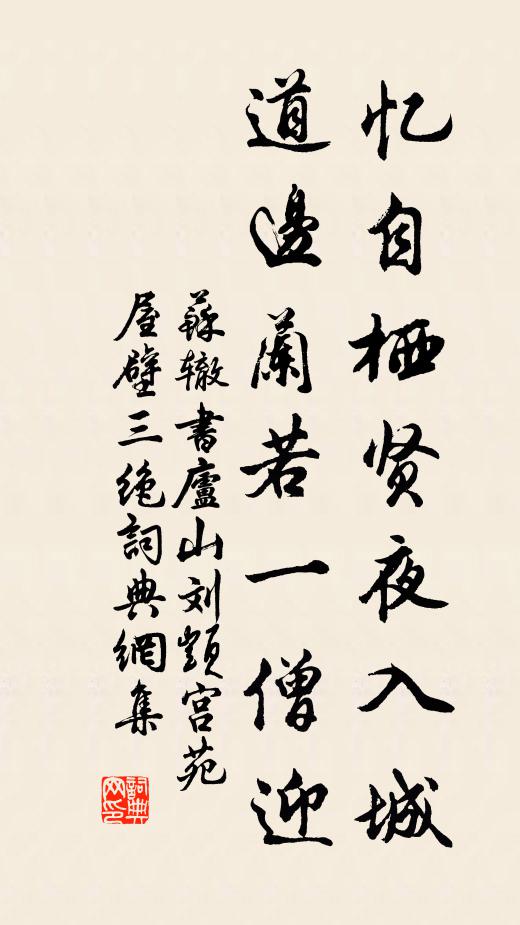 忆自栖贤夜入城
道邊蘭若一僧迎
蘇辙書廬山刘顗宫苑
屋壁三绝詞典網集
詞典网印